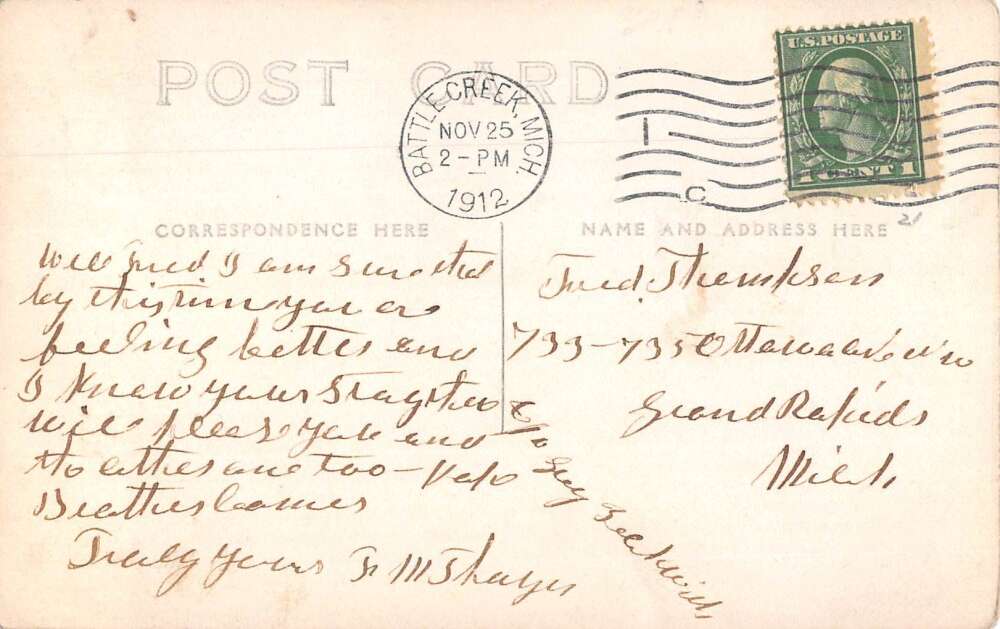 POST CARD
BATTLE CREEK, MICH.
NOV 25
2-PM
1912
U.S. POSTAGE
1 CENT 1
1
C
21
CORRESPONDENCE HERE
Well Fred I am sure that
by this time you are
feeling better and
I know your Stay
will pleas you and
the other one too –
Brother comes
Truly yours F M Thayer
NAME AND ADDRESS HERE
Fred. Thompson
733-735 Ottawa ave N W
Grand Rapids
Mich
c/o Guy